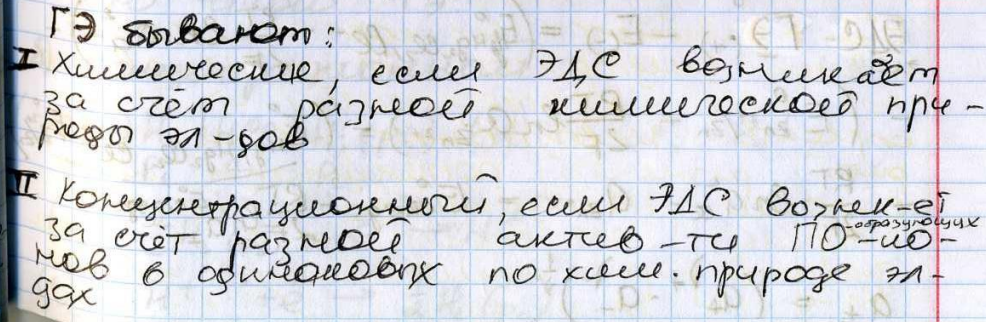 ГЭ бывают:
I Химические, если ЭДС возникает
за счёт разной химической при-
роды эл-дов
II Концентрационный, если ЭДС возник-ет
за счёт разной актив-ти ПО-образующих ио-
нов в одинаковых по хим. природе эл-
дах